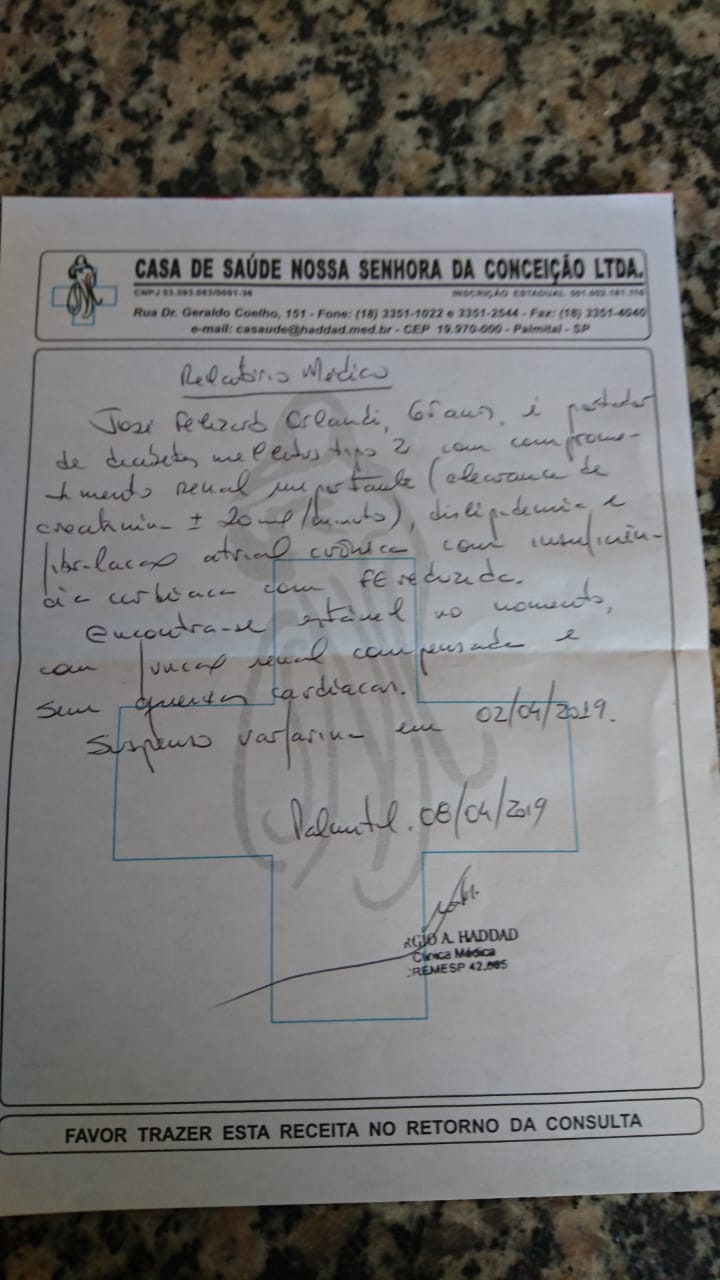 CASA DE SAÚDE NOSSA SENHORA DA CONCEIÇÃO LTDA.
CNPJ 53.593.663/0001-36 INSCRIÇÃO ESTADUAL
Rua Dr. Geraldo Coelho, 151 - Fone: (18) 3351-1022 e 3351-2544 - Fax: (18) 3351-4040
e-mail: casaude@haddad.med.br - CEP 19.970-000 - Palmital - SP
Relatório Médico
José Orlandi, anos, é portador
de diabetes mellitus tipo 2 com comprome-
timento renal importante (clearance de
creatinina ± 20 ml/minuto), dislipidemia e
fibrilacao atrial crônica com insuficiên-
cia cardiaca com FE reduzida.
Encontra-se estável no momento,
com funcao renal compensada e
sem queixas cardiacas.
Suspenso varfarina em 02/04/2019.
Palmital. 08/04/2019
RGIO A. HADDAD
Clínica Médica
CREMESP
FAVOR TRAZER ESTA RECEITA NO RETORNO DA CONSULTA